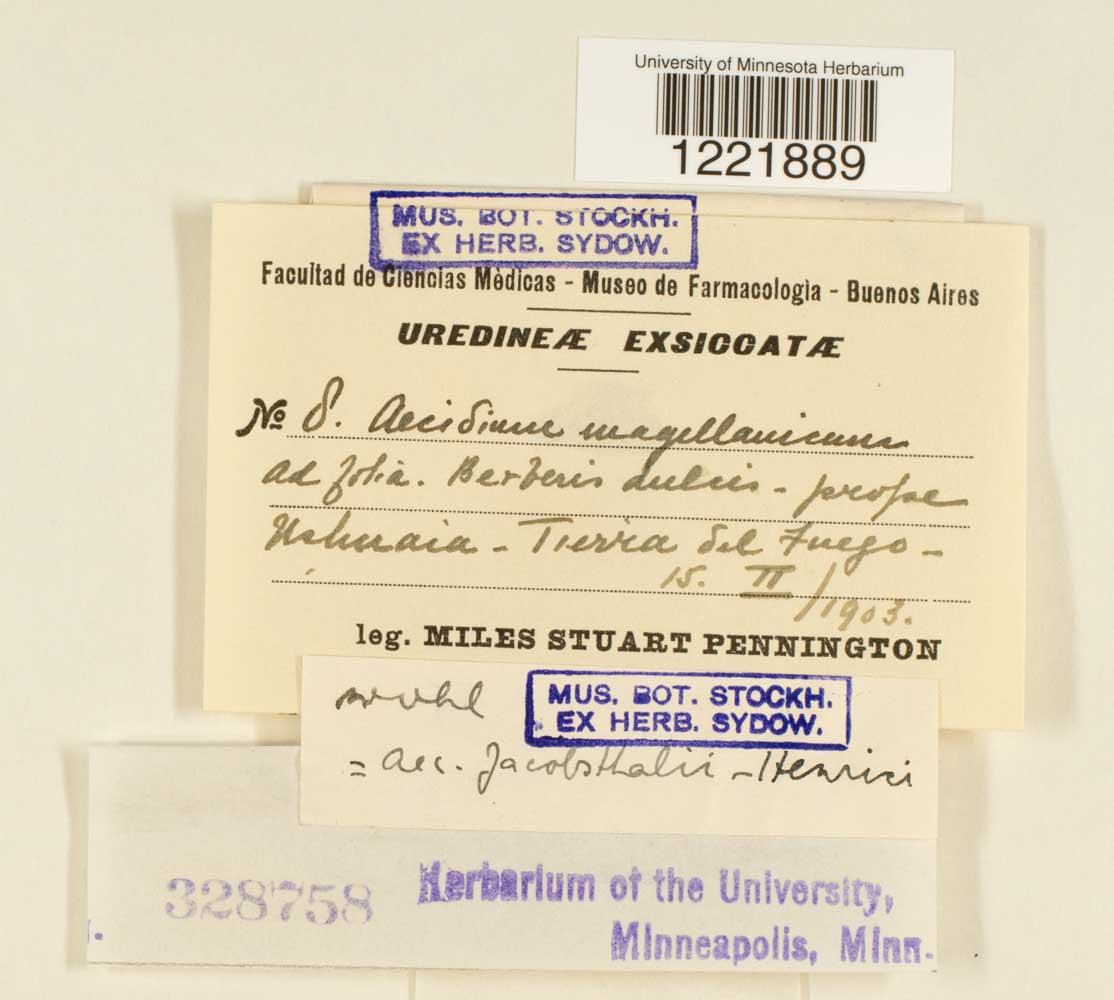 University of Minnesota Herbarium
1221889
MUS. BOT. STOCKH.
EX HERB. SYDOW.
Facultad de Ciencias Mèdicas - Museo de Farmacologìa - Buenos Aires
UREDINEÆ EXSICCATÆ
No 8. Aecidium magellanicum
ad folia. Berberis dulcis - prope
Ushuaia - Tierra del Fuego -
15. II / 1903.
leg. MILES STUART PENNINGTON
wohl
MUS. BOT. STOCKH.
EX HERB. SYDOW.
= Aec. Jacobsthalii - Henrici
328758
Herbarium of the University,
Minneapolis, Minn.